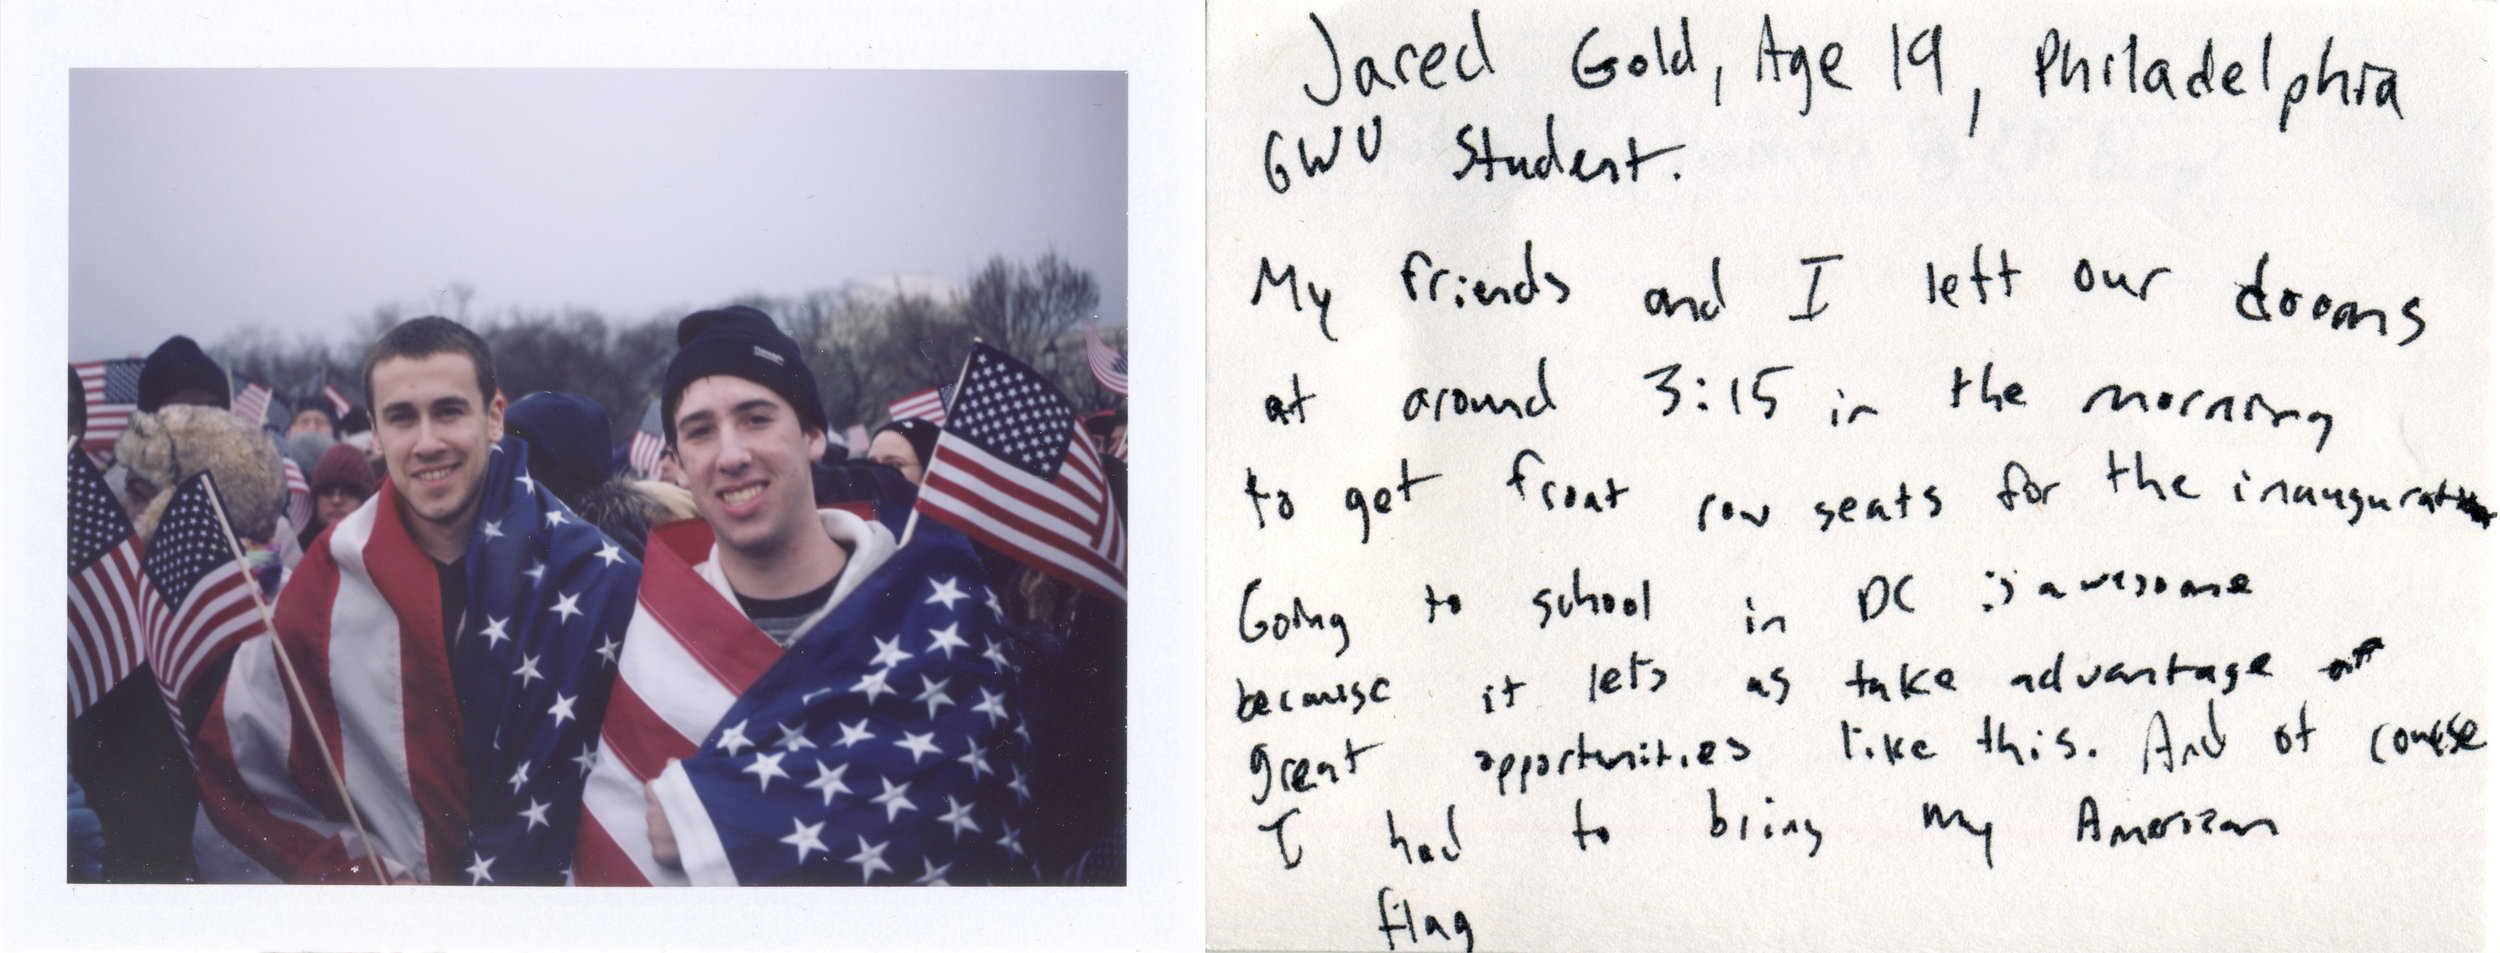 Jared Gold, Age 19, Philadelphia
GWU Student.
My friends and I left our dorms
at around 3:15 in the morning
to get front row seats for the inauguration
Going to school in DC is awesome
because it lets us take advantage of
great opportunities like this. And of course
I had to bring my American
flag